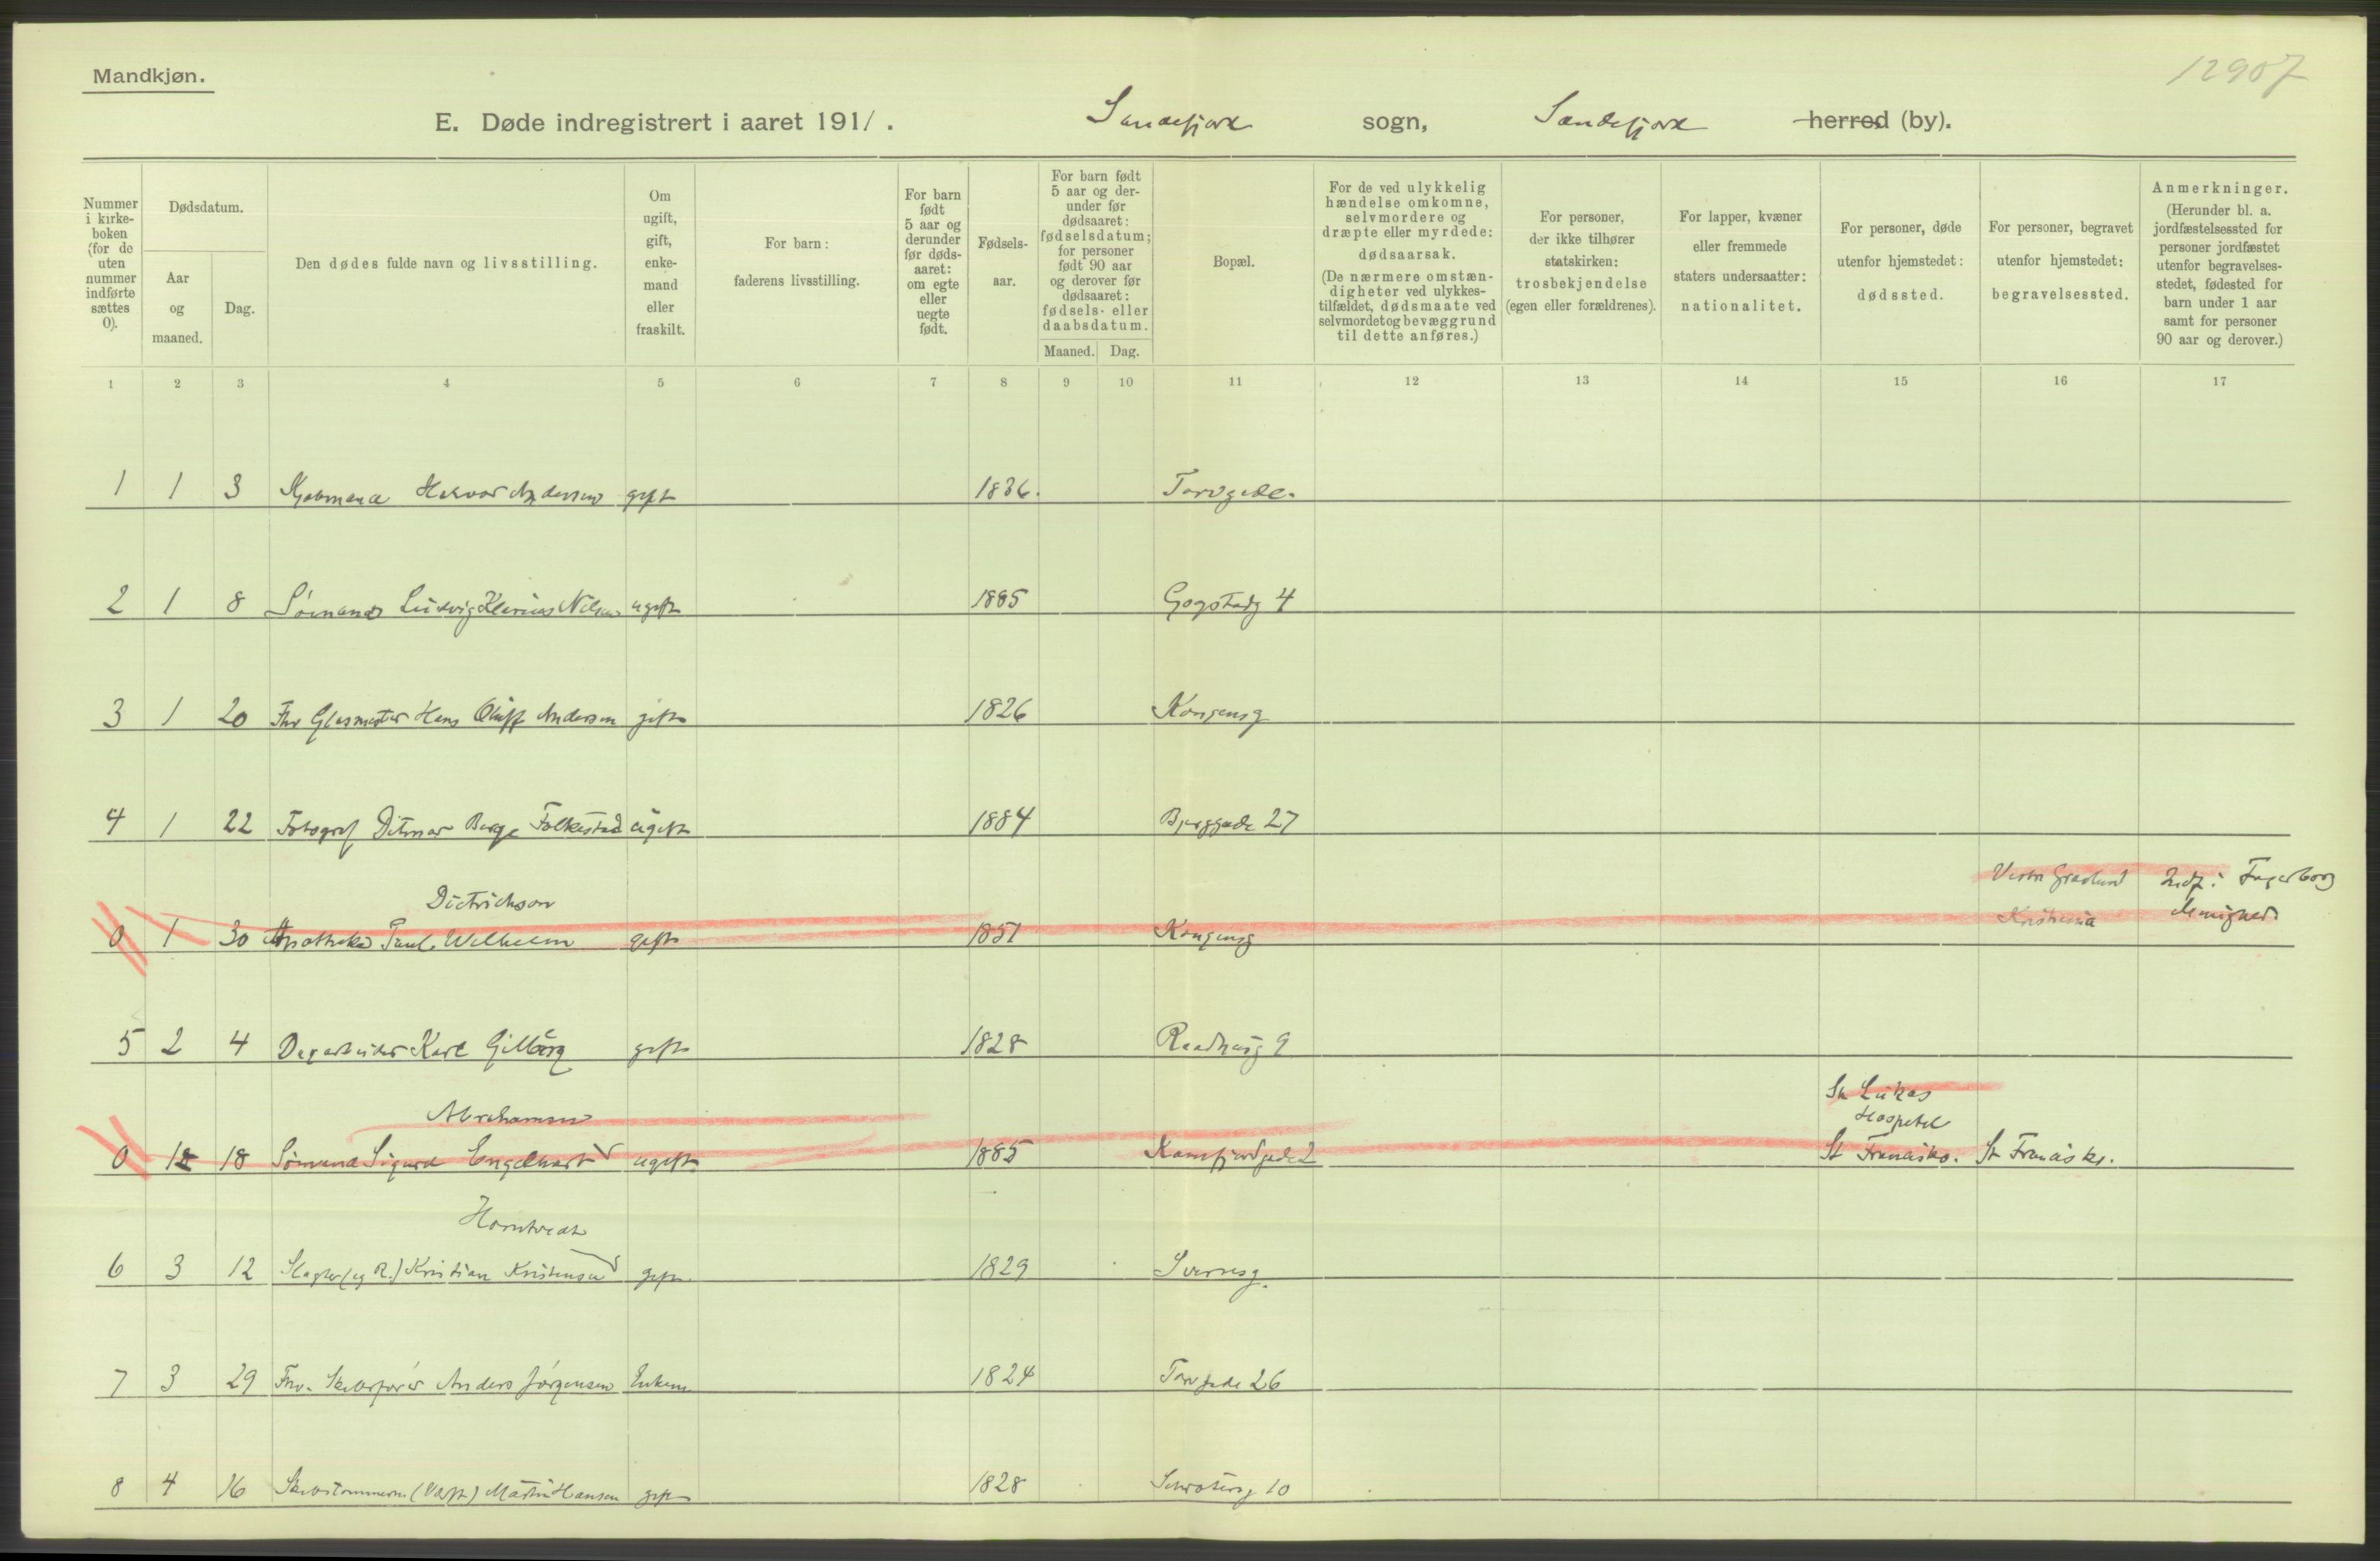 Mandkjøn.
12907
E. Døde indregistrert i aaret 1911. Sandefjord sogn, Sandefjord herred (by).
Nummer i kirke-boken (for de uten nummer indførte sættes 0).
Dødsdatum.
Aar og maaned.
Dag.
Den dødes fulde navn og livsstilling.
Om ugift, gift, enke-mand eller fraskilt.
For barn: faderens livsstilling.
For barn født 5 aar og derunder før døds-aaret: om egte eller uegte født.
Fødsels-aar.
For barn født 5 aar og der-under før dødsaaret: fødselsdatum; for personer født 90 aar og derover før dødsaaret: fødsels- eller daabsdatum.
Maaned. Dag.
Bopæl.
For de ved ulykkelig hændelse omkomne, selvmordere og dræpte eller myrdede: dødsaarsak. (De nærmere omstæn-digheter ved ulykkes-tilfældet, dødsmaate ved selvmordet og bevæggrund til dette anføres.)
For personer, der ikke tilhører statskirken: trosbekjendelse (egen eller forældrenes).
For lapper, kvæner eller fremmede staters undersaatter: nationalitet.
For personer, døde utenfor hjemstedet: dødssted.
For personer, begravet utenfor hjemstedet: begravelsessted.
Anmerkninger. (Herunder bl. a. jordfæstelsessted for personer jordfæstet utenfor begravelses-stedet, fødested for barn under 1 aar samt for personer 90 aar og derover.)
1 2 3 4 5 6 7 8 9 10 11 12 13 14 15 16 17
1 1 3 Kjøbmand Halvor Andersen gift 1836. Torvgade.
2 1 8 Sømand Ludvig Nilsen ugift 1885 Gogstadg 4
3 1 20 Fhv Glasmester Hans Oluff Andersen gift 1826 Kongensg
4 1 22 Fotograf Ditmar Borge Folkestad ugift 1884 Bjerggade 27
Dietrichson
Vestre Gravlund Indf. i Fagerborg
0 1 30 Apotheker Paul Wilhelm gift 1851 Kongensg Kristiania Menighed
5 2 4 Dagarbeider Karl Gillberg gift 1828 Raadhusg 9
Abrahamsen
St Lukas
Hospital
0 12 18 Sømand Sigurd Engelhart ugift 1885 Kamfjordgade 2 St Francisko. St Francisko.
Horntvedt
6 3 12 Slagter (og R.) Kristian Kristensen gift 1829 Sverresg.
7 3 29 Fhv. Skibsfører Anders Jørgensen Enkem 1824 Torvgade 26
8 4 16 Skibstømmerm. (Værft) Martin Hansen gift 1828 Schrøtersg 10